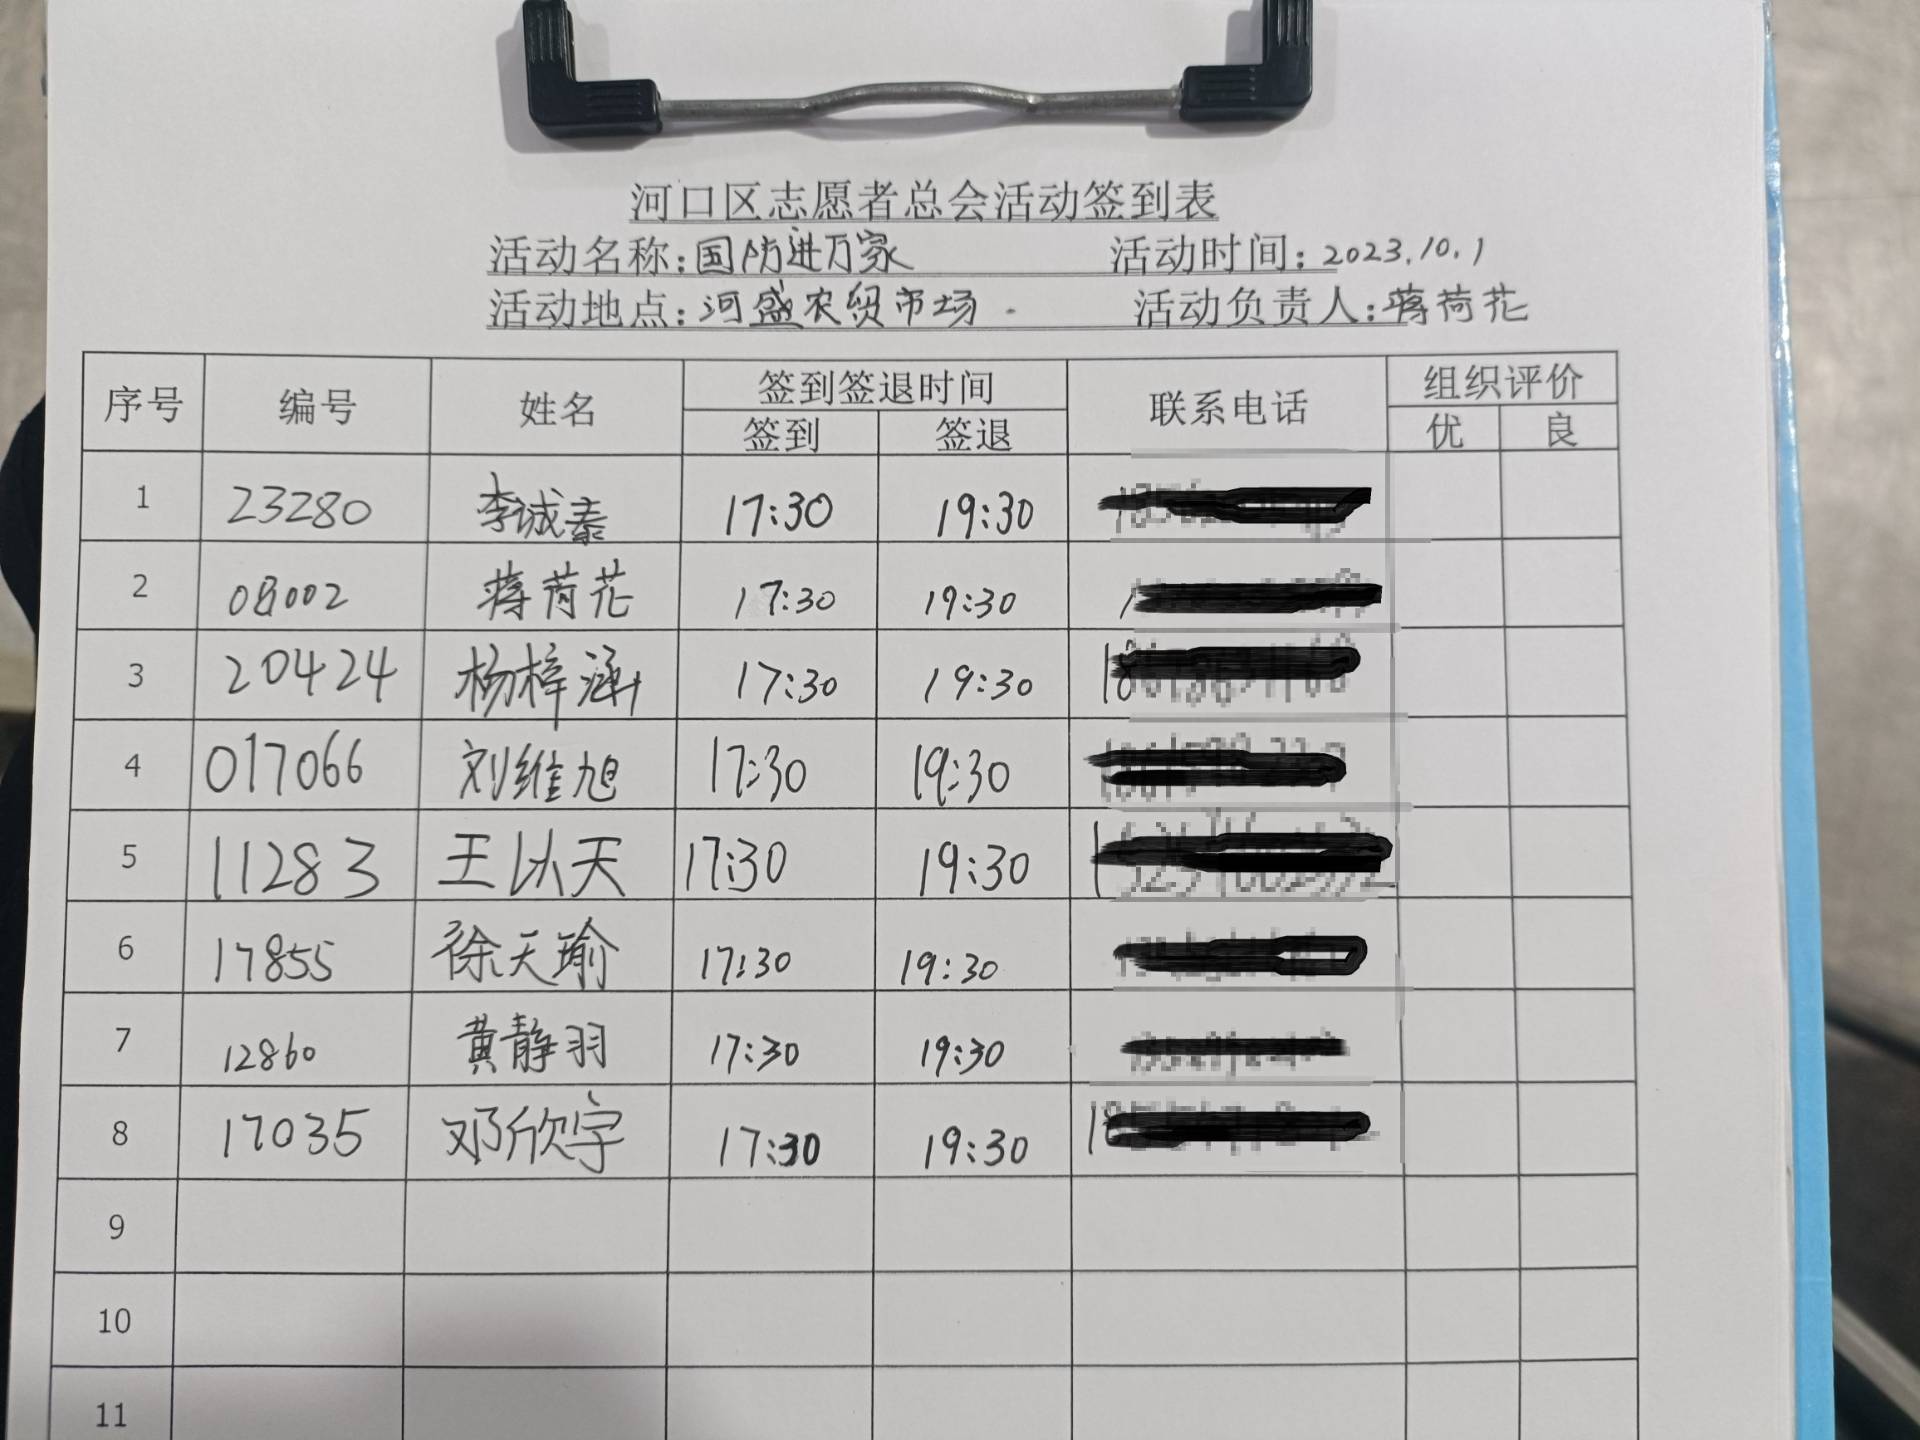 河口区志愿者总会活动签到表
活动名称:国防进万家 活动时间:2023.10.1
活动地点:河盛农贸市场. 活动负责人:蒋荷花
序号 编号 姓名 签到签退时间 联系电话 组织评价
签到 签退 优 良
1 23280 李诚泰 17:30 19:30
2 08002 蒋荷花 17:30 19:30
3 20424 杨梓涵 17:30 19:30
4 017066 刘维旭 17:30 19:30
5 11283 王以天 17:30 19:30
6 17855 徐天瑜 17:30 19:30
7 12860 黄静羽 17:30 19:30
8 17035 邓欣宇 17:30 19:30
9
10
11